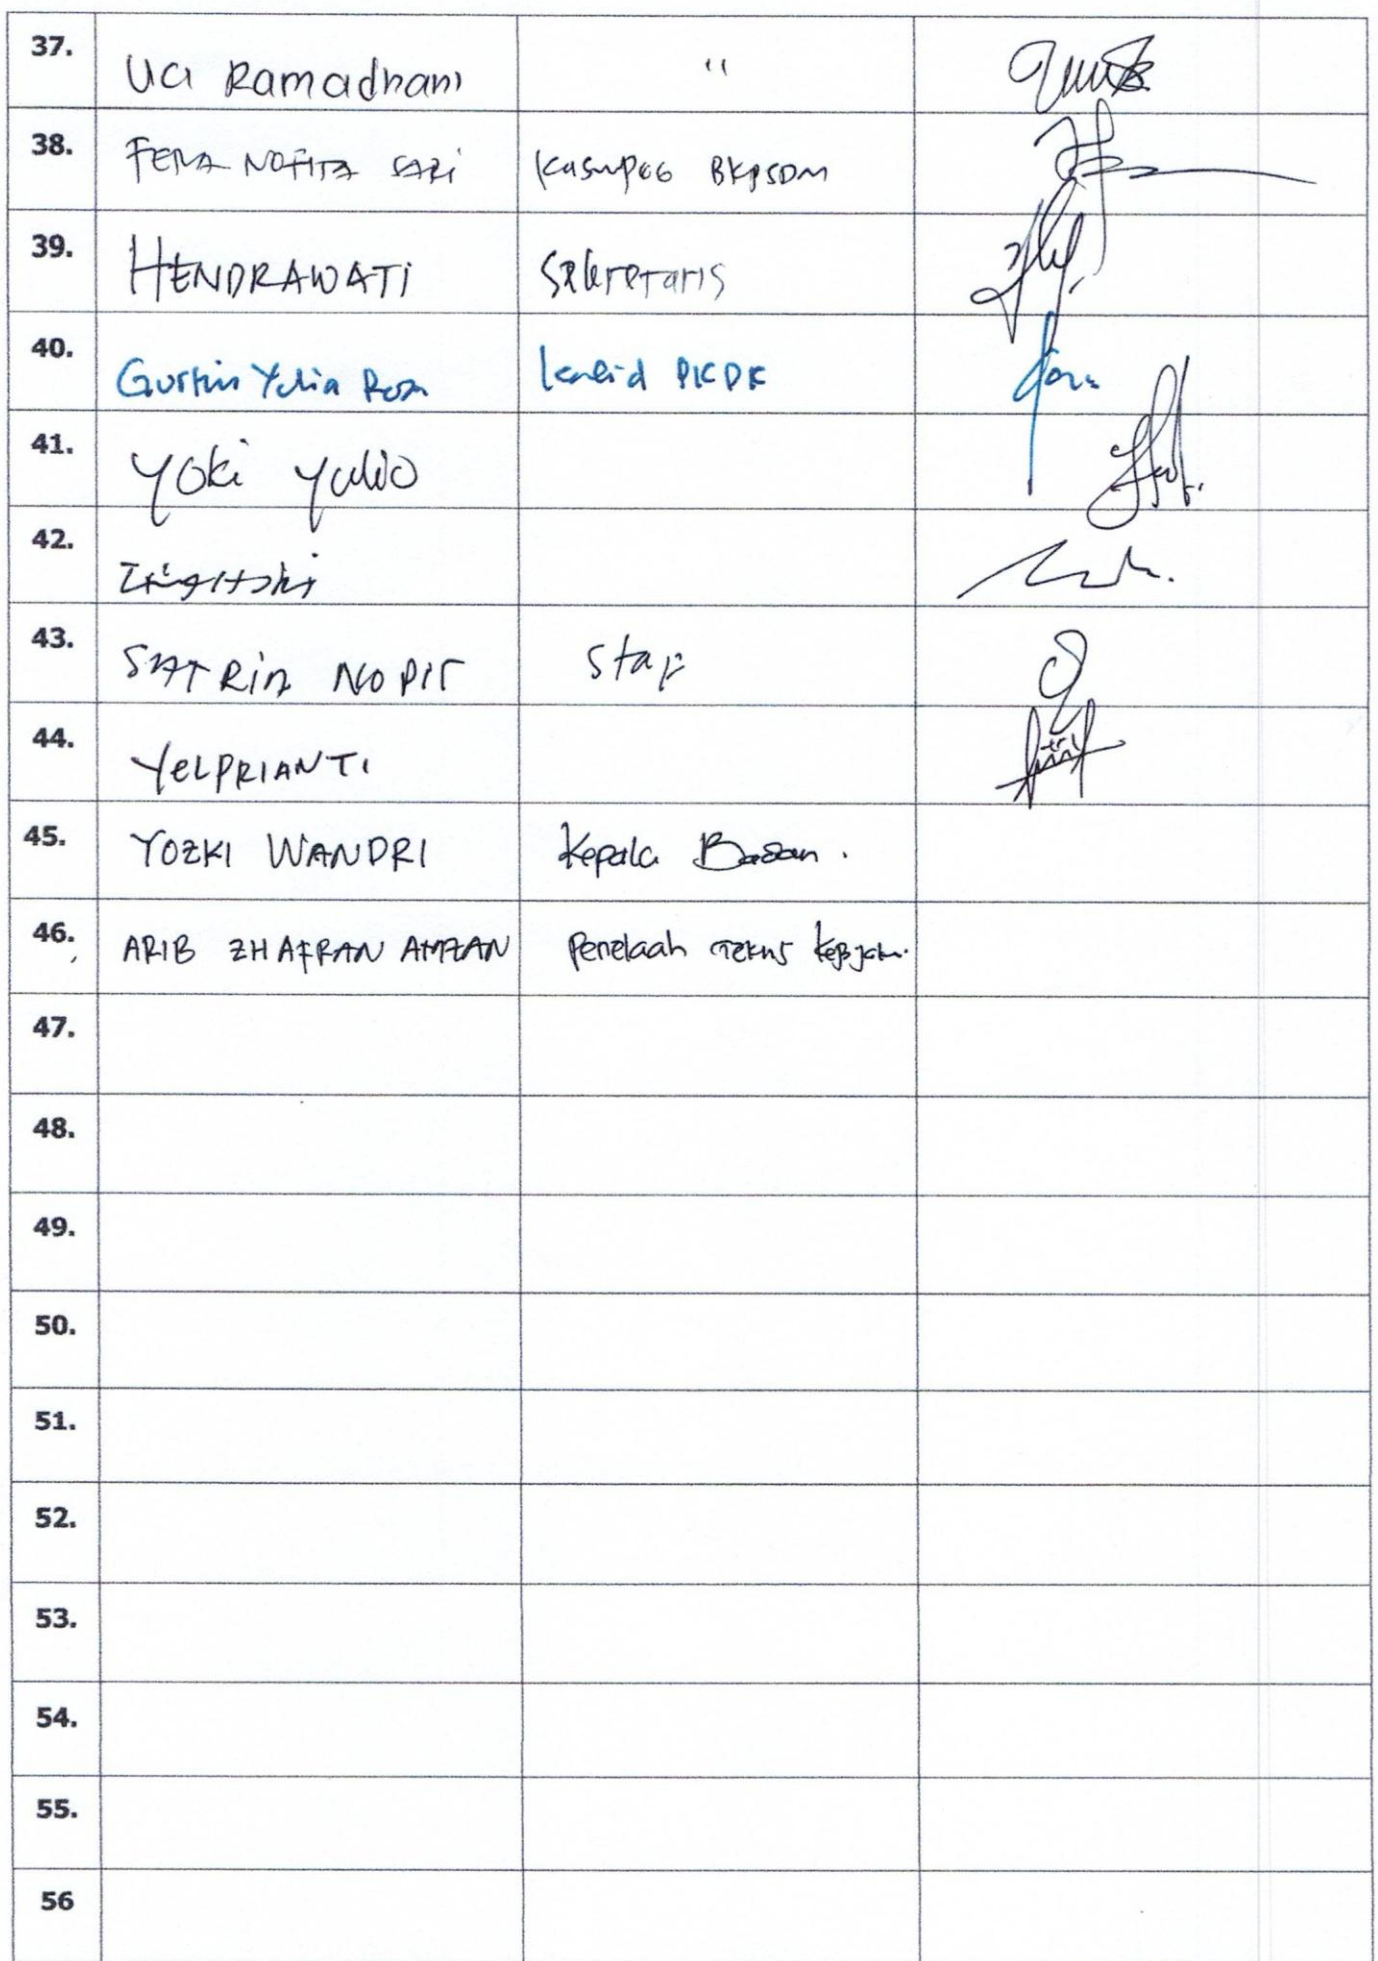 37. Uci Ramadhani "
38. FERA NOFITA SARI Kasubag BKPSDM
39. HENDRAWATI Sekretaris
40. Gustin Yulia Rosa Kabid PKPK
41. Yoki Yulio
42.
43. SATRIA NOPIT Staf
44. YELPRIANTI
45. YOZKI WANDRI Kepala Badan.
46. ARIB ZHAFRAN AMZAN Penelaah Teknis Kebijakan.
47.
48.
49.
50.
51.
52.
53.
54.
55.
56